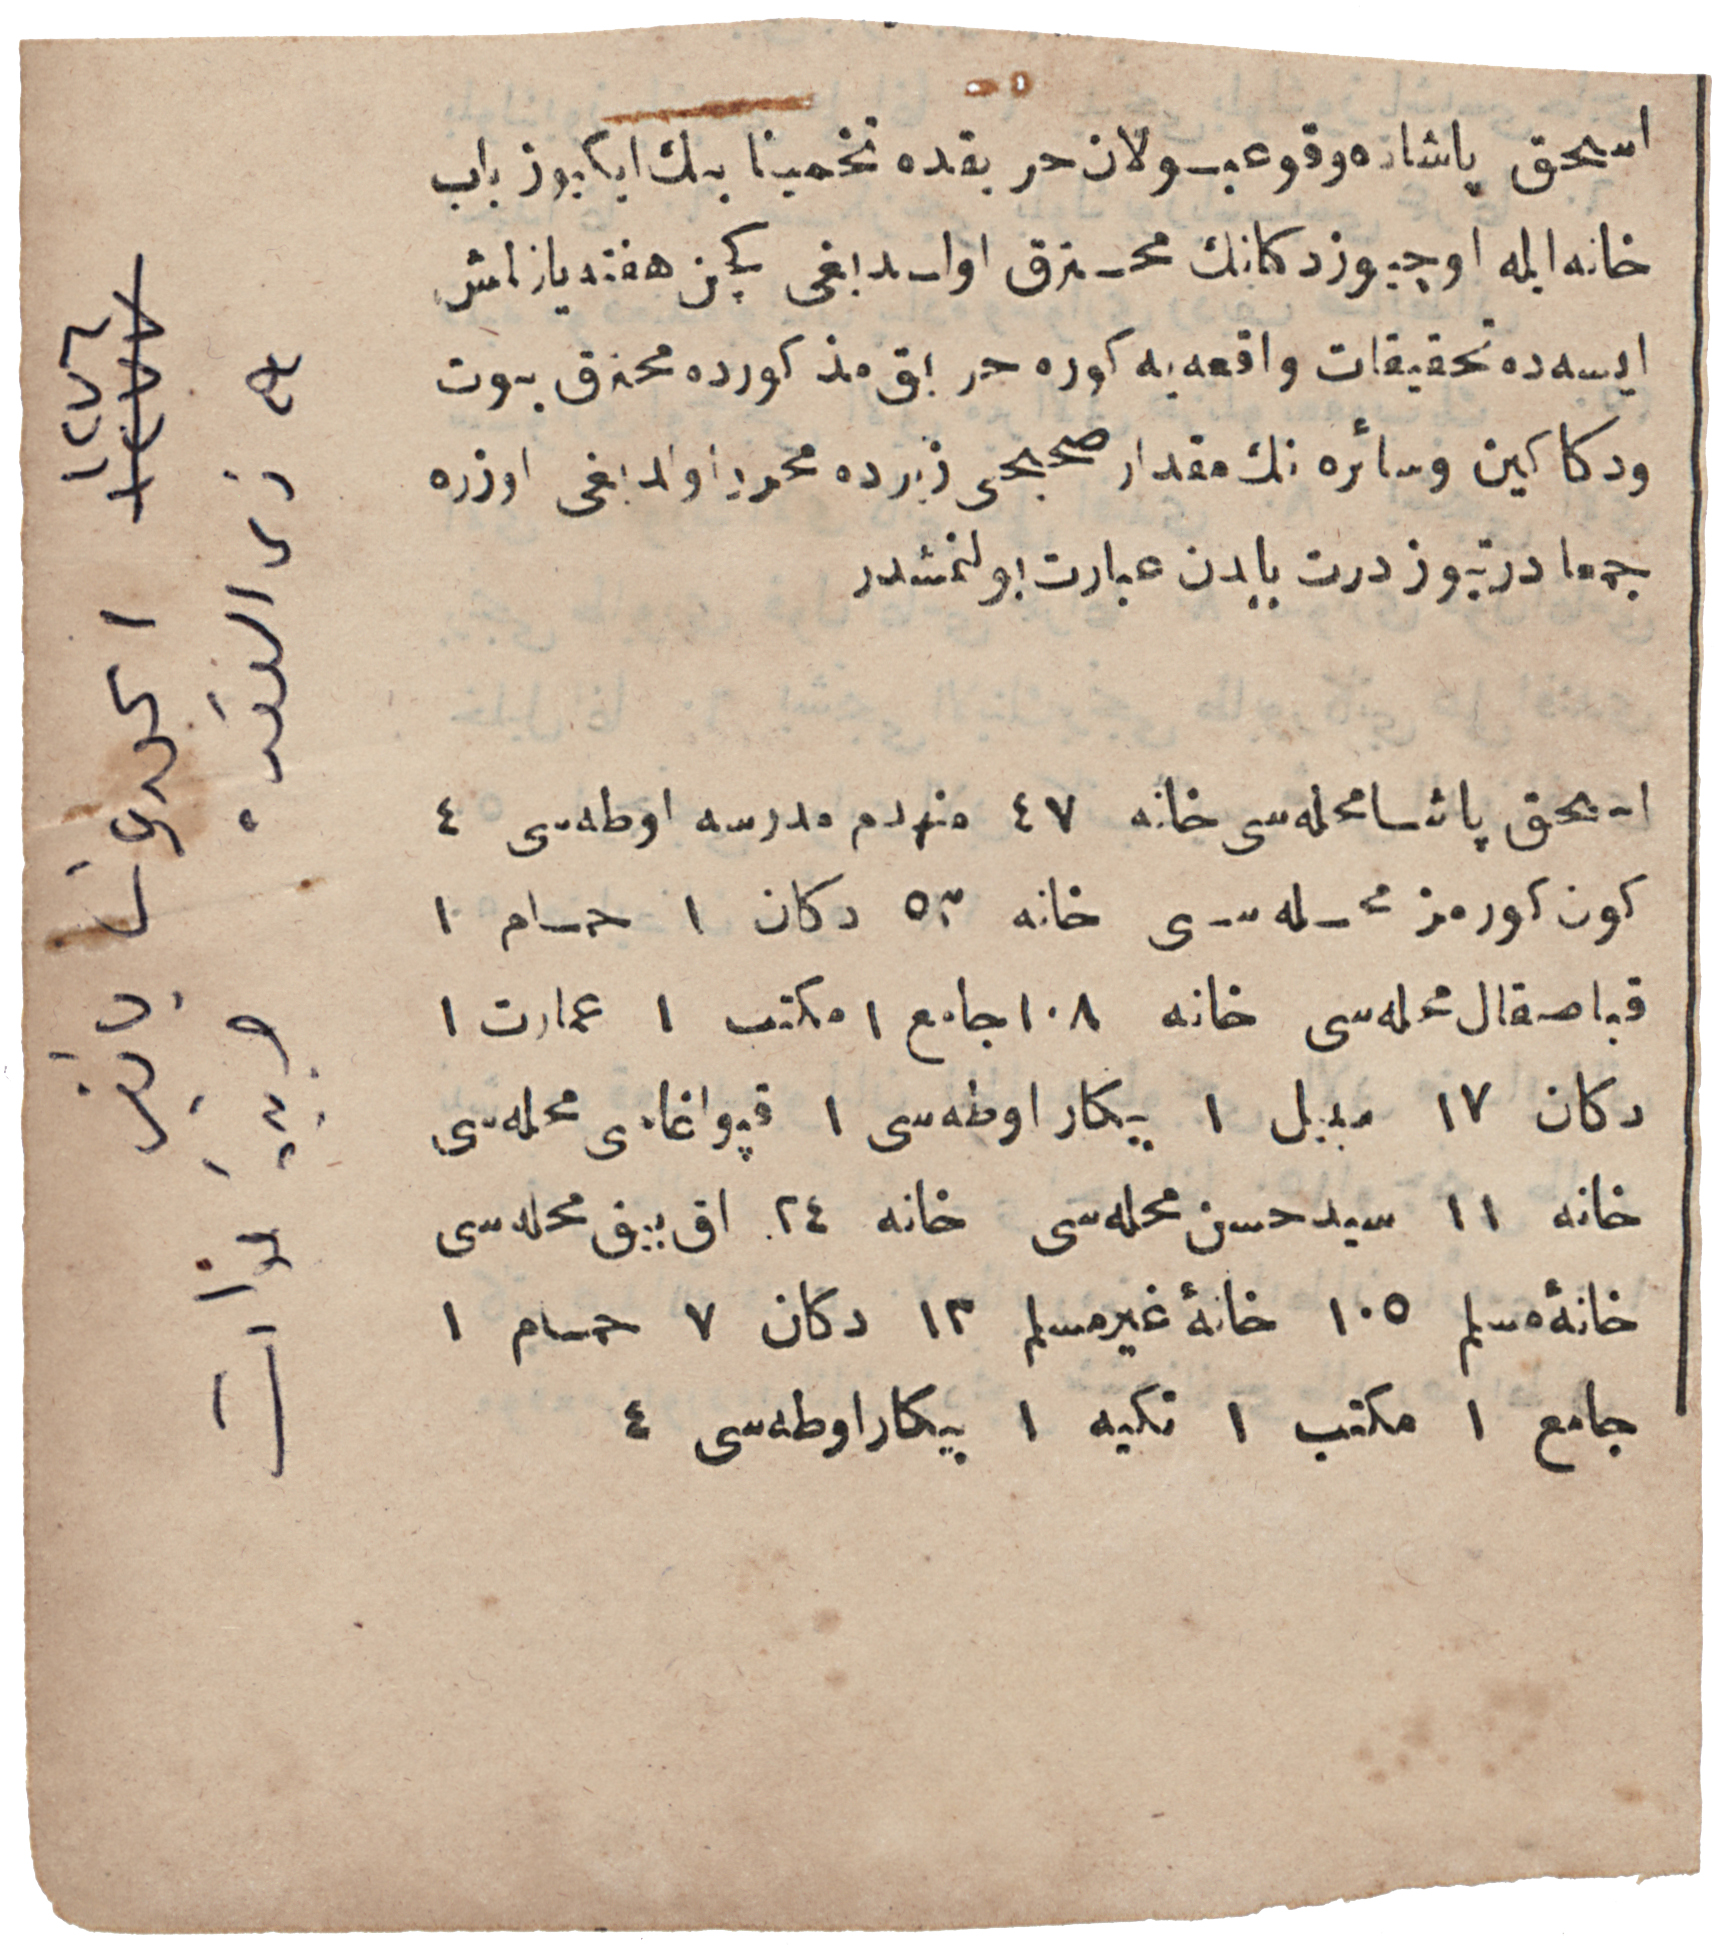 اسحق پاشاده وقوعبولان حريقده تخمينا بيك ايكيوز باب
خانه ايله اوچيوز دكانك محترق اولديغى كچن هفته يازلمش
ايسه ده تحقيقات واقعه يه كوره حريق مذكورده محترق بيوت
ودكاكين وسائره نك مقدار صحيحى زيرده محرر اولديغى اوزره
جمعا درتيوز درت بابدن عبارت بولنمشدر
اسحق پاشا محله سى خانه ٤٧ منهدم مدرسه اوطه سى ٤
كون كورمز محله سى خانه ٥٣ دكان ١ حمام ١
قباصقال محله سى خانه ١٠٨ جامع ١ مكتب ١ عمارت ١
دكان ١٧ سبيل ١ بيكار اوطه سى ١ قپواغاسى محله سى
خانه ١١ سيد حسن محله سى خانه ٢٤ اق بيق محله سى
خانهٔ مسلم ١٠٥ خانهٔ غيرمسلم ١٣ دكان ٧ حمام ١
جامع ١ مكتب ١ تكيه ١ بيكار اوطه سى ٤
ذى القعده
١٢٧٦